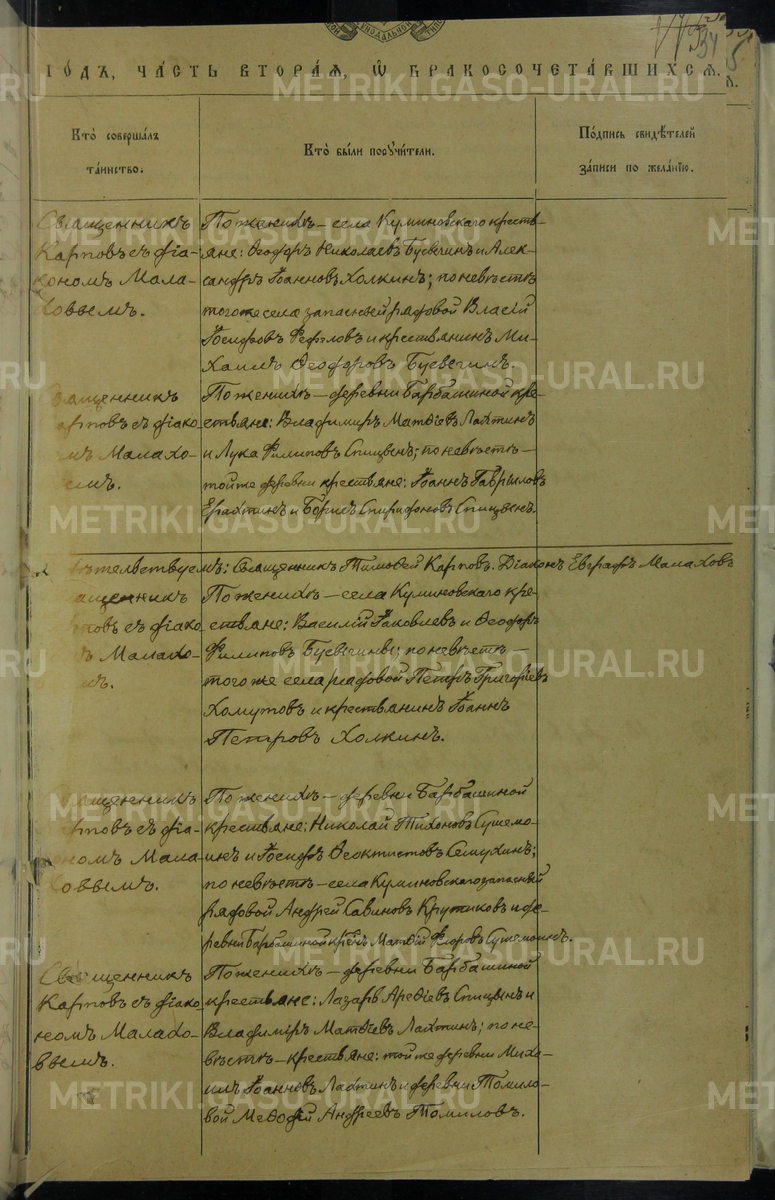 СѴНОДАЛЬНОЙ
34
5
ГО́ДЪ, ЧА́СТЬ ВТОРА́Я, Ѡ҆ БРАКОСОЧЕТА́ВШИХСЯ.
Кто̀ соверша́лъ та́инство.
Кто̀ бы́ли порꙋчи́тели.
По́дпись свидѣ́телей за́писи по жела́нїю.
Священникъ
Карповъ съ діа-
кономъ Мала-
ховымъ.
По женихѣ – села Куминовскаго кресть-
яне: Ѳеодоръ Николаевъ Бусыгинъ и Алек-
сандръ Іоанновъ Холкинъ; по невѣстѣ
того же села запасный рядовой Власій
Іосифовъ и крестьянинъ Ми-
хаилъ Ѳеодоровъ Бусыгинъ.
ященникъ
арповъ съ діако-
мъ Малахо-
ымъ.
По женихѣ – деревни Барбашиной кре-
стьяне: Владимиръ Матѳіевъ Лахтинъ
и Лука Филиповъ Спицынъ; по невѣстѣ –
той же деревни крестьяне: Іоаннъ Гаврыловъ
Ерахтинъ и Борисъ Спиридоновъ Спицынъ.
ѣтельствуемъ: Священникъ Тимоѳей Карповъ. Діаконъ Евграфъ Малаховъ
ященникъ
повъ съ діако-
ъ Малахо-
мъ.
По женихѣ – села Куминовскаго кре-
стьяне: Василій Іаковлевъ и Ѳеодоръ
Филиповъ Бусыгины; по невѣстѣ –
того же села рядовой Петръ Григоріевъ
Хомутовъ и крестьянинъ Іоаннъ
Петровъ Холкинъ.
ященникъ
рповъ съ діа-
кономъ Мала-
ховымъ.
По женихѣ – деревни Барбашиной
крестьяне: Николай Тихоновъ Сушемо-
инъ и Іосифъ Ѳеоктистовъ Семухинъ;
по невѣстѣ – села Куминовскаго запасный
рядовой Андрей Савиновъ Крутиковъ и де-
ревни Барбашиной крест. Матѳій Сушемоинъ.
Священникъ
Карповъ съ діако-
номъ Малахо-
вымъ.
По женихѣ – деревни Барбашиной
крестьяне: Лазарь Ареѳіевъ Спицынъ и
Владиміръ Матѳіевъ Лахтинъ; по не-
вѣстѣ – крестьяне: той же деревни Миха-
илъ Іоанновъ Лахтинъ и деревни Томило-
вой Меѳодій Андреевъ Томиловъ.
METRIKI.GASO-URAL.RU